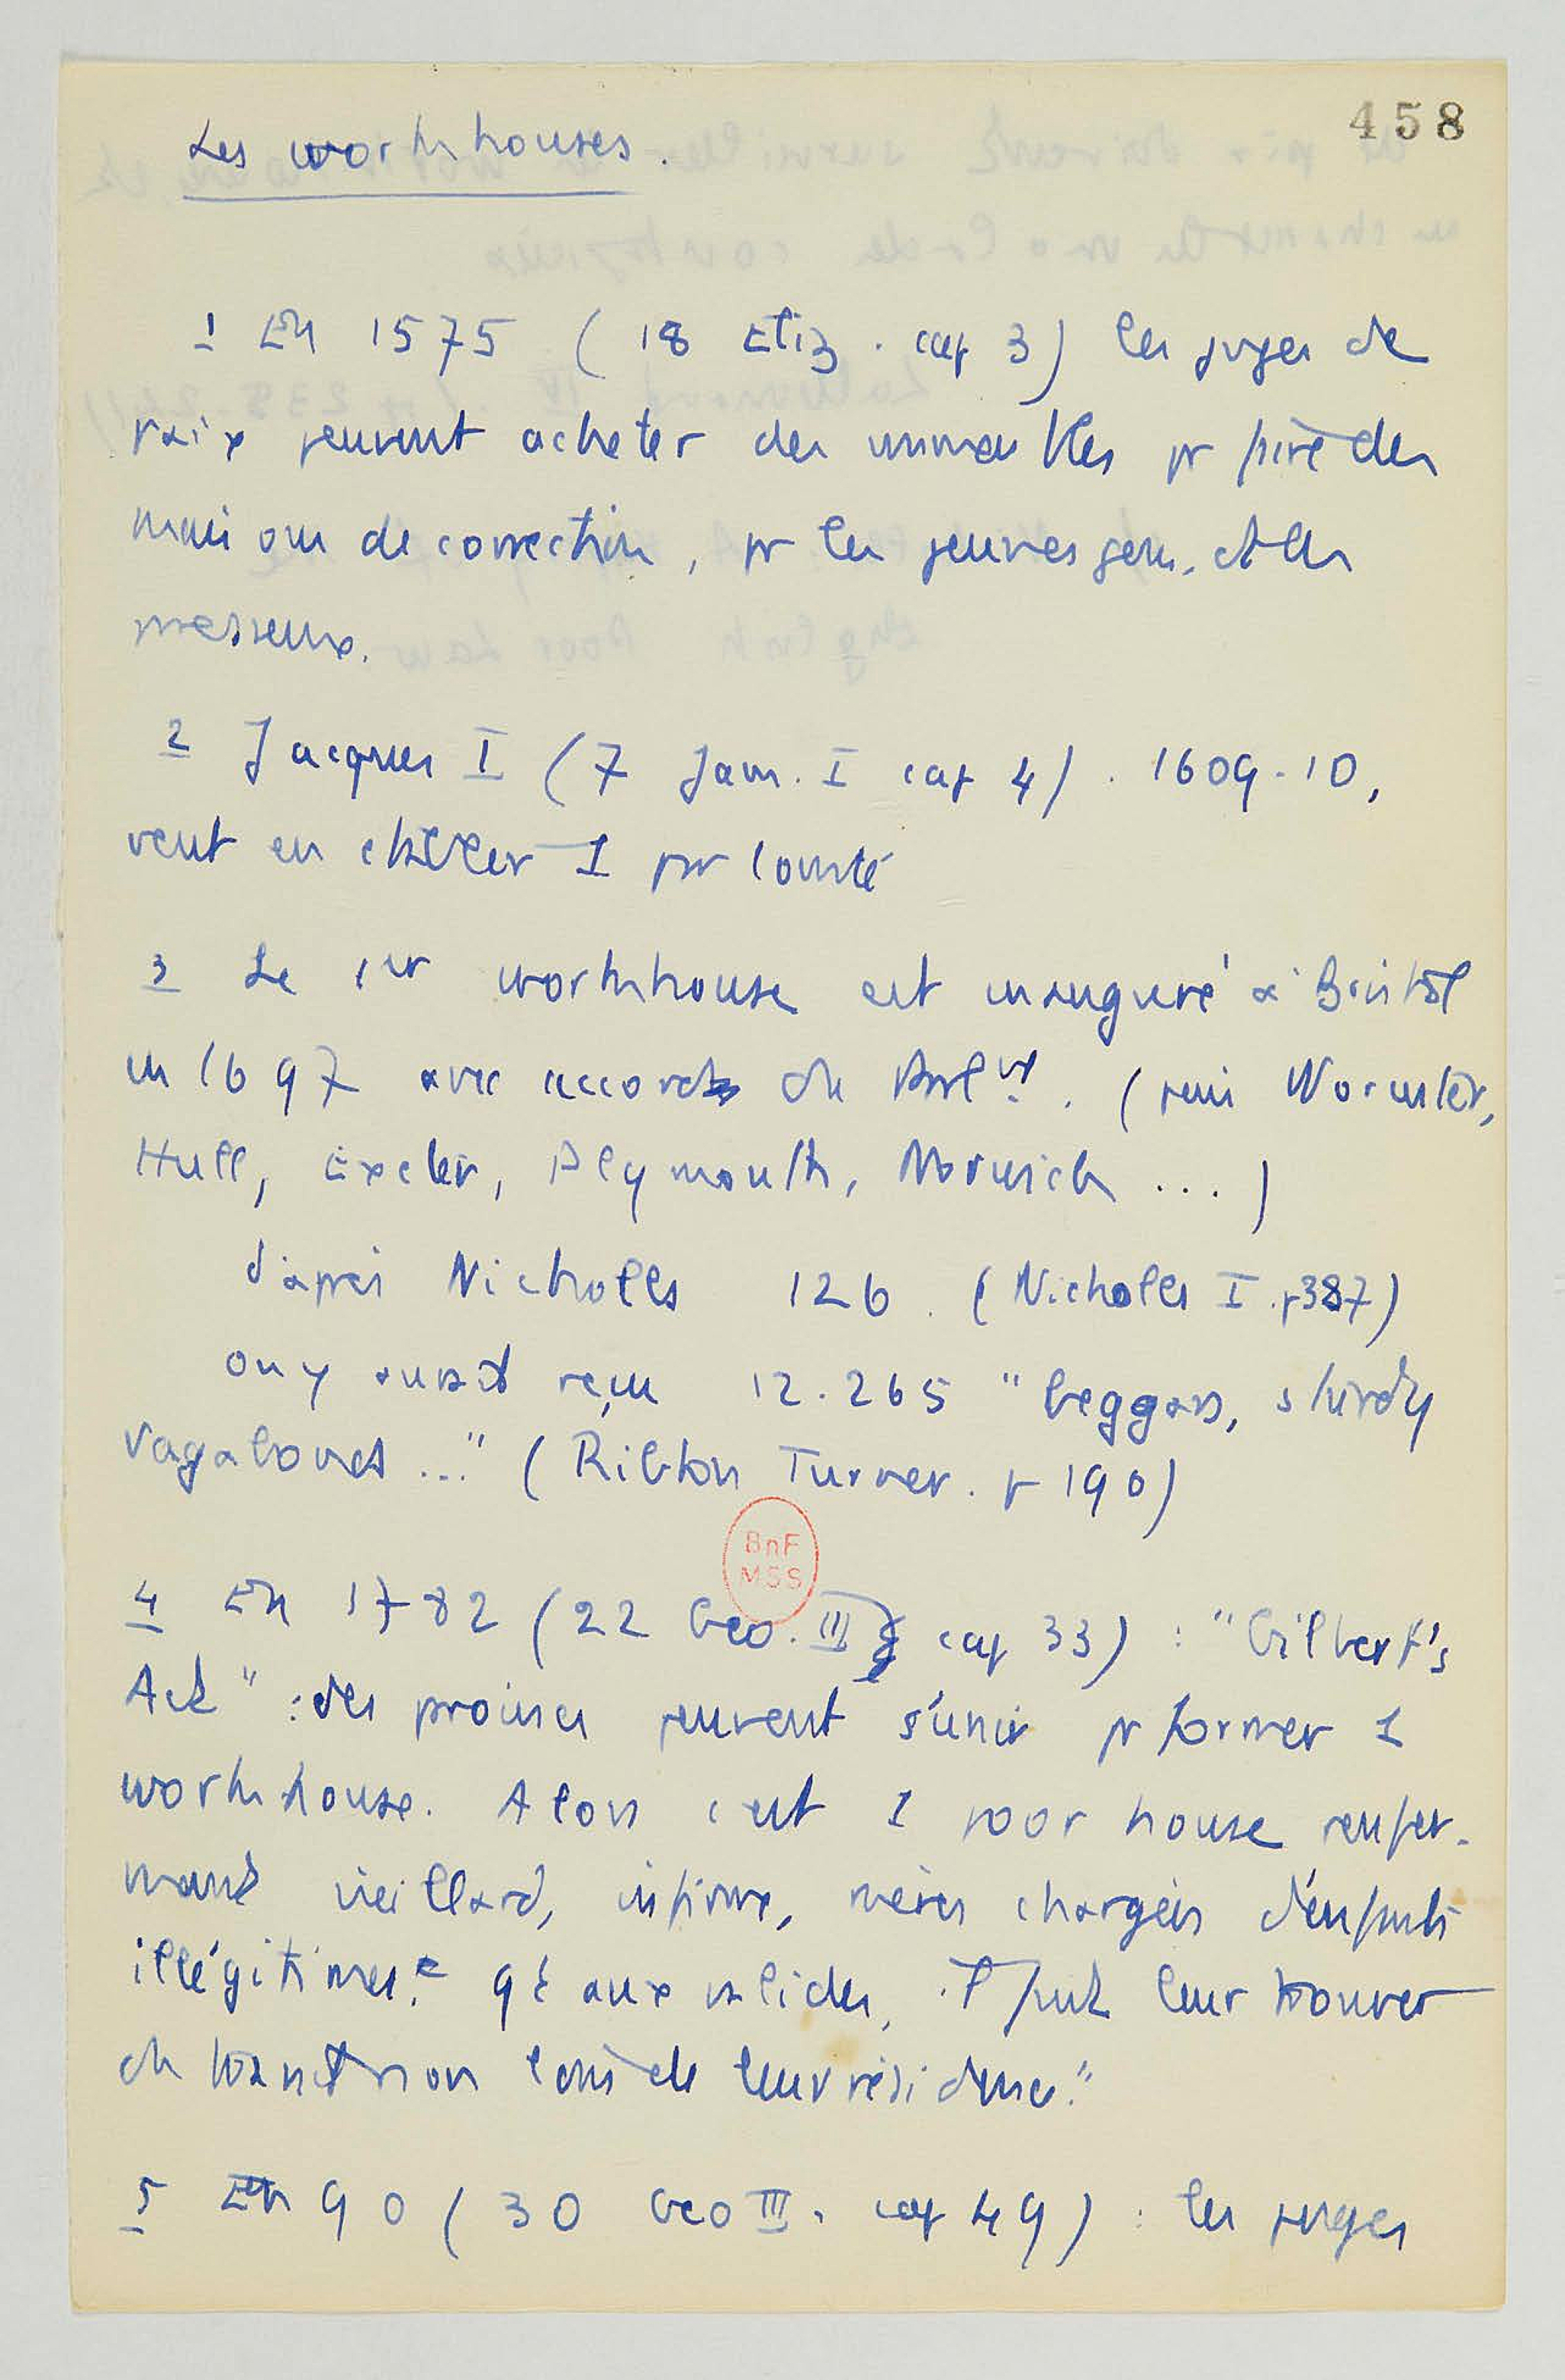 458
Les workhouses.
1 En 1575 (18 Eliz. cap 3) les juges de
paix peuvent acheter des immeubles pr faire des
maisons de correction, pr les pauvres gens, et les
paresseux.
2 Jacques I (7 Jam. I cap 4). 1609-10,
veut en établir 1 par comté
3 Le 1er workhouse est inauguré à Bristol
en 1697 avec accord du Parlt. (puis Worcester,
Hull, Exeter, Plymouth, Norwich ...)
d'après Nicholls 126. (Nicholls I. p 387)
on y aurait reçu 12.265 "beggars, sturdy
vagabonds ..." (Ribton Turner. p 190)
BnF
MSS
4 En 1782 (22 Geo. III cap 33) : "Gilbert's
Act" : des paroisses peuvent s'unir pr former 1
workhouse. Alors c'est 1 poor house renfer-
mant vieillard, infirme, mères chargées d'enfants
illégitimes. qt aux valides, il faut leur trouver
du travail non loin de leur résidence."
5 En 90 (30 Geo III. cap 49) : les juges